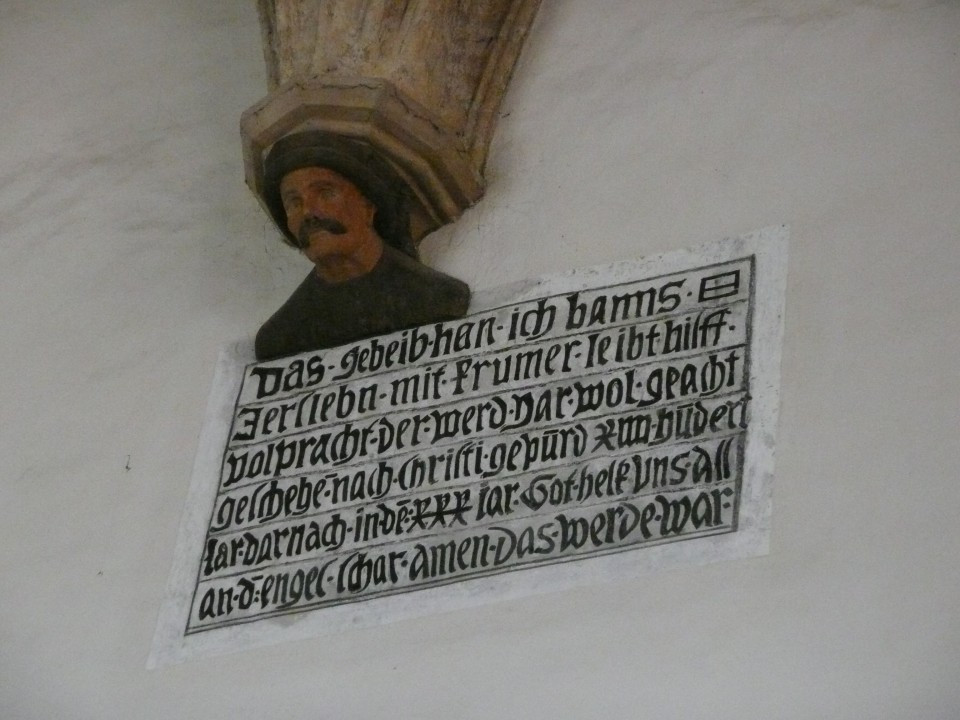 Das · gebeib · han · ich hanns ·
Jerslebn · mit · frumer · leibt hilff ·
volpracht · der · werd · var · wol · geacht
geschehē · nach · christi · gepūrd xiiii · hūdert
Jar · darnach · in · dē · xxx iar · Got · helf vns · all
an · d̄ · engel · schar · amen · Das · werde · war ·